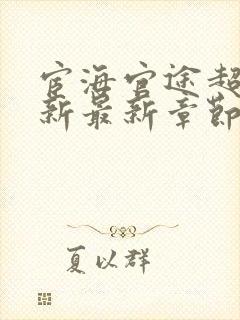 宦海官途超
新最新章节
夏以群